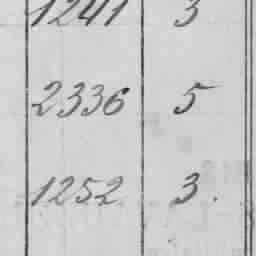 1241 3
2336 5
1252 3.